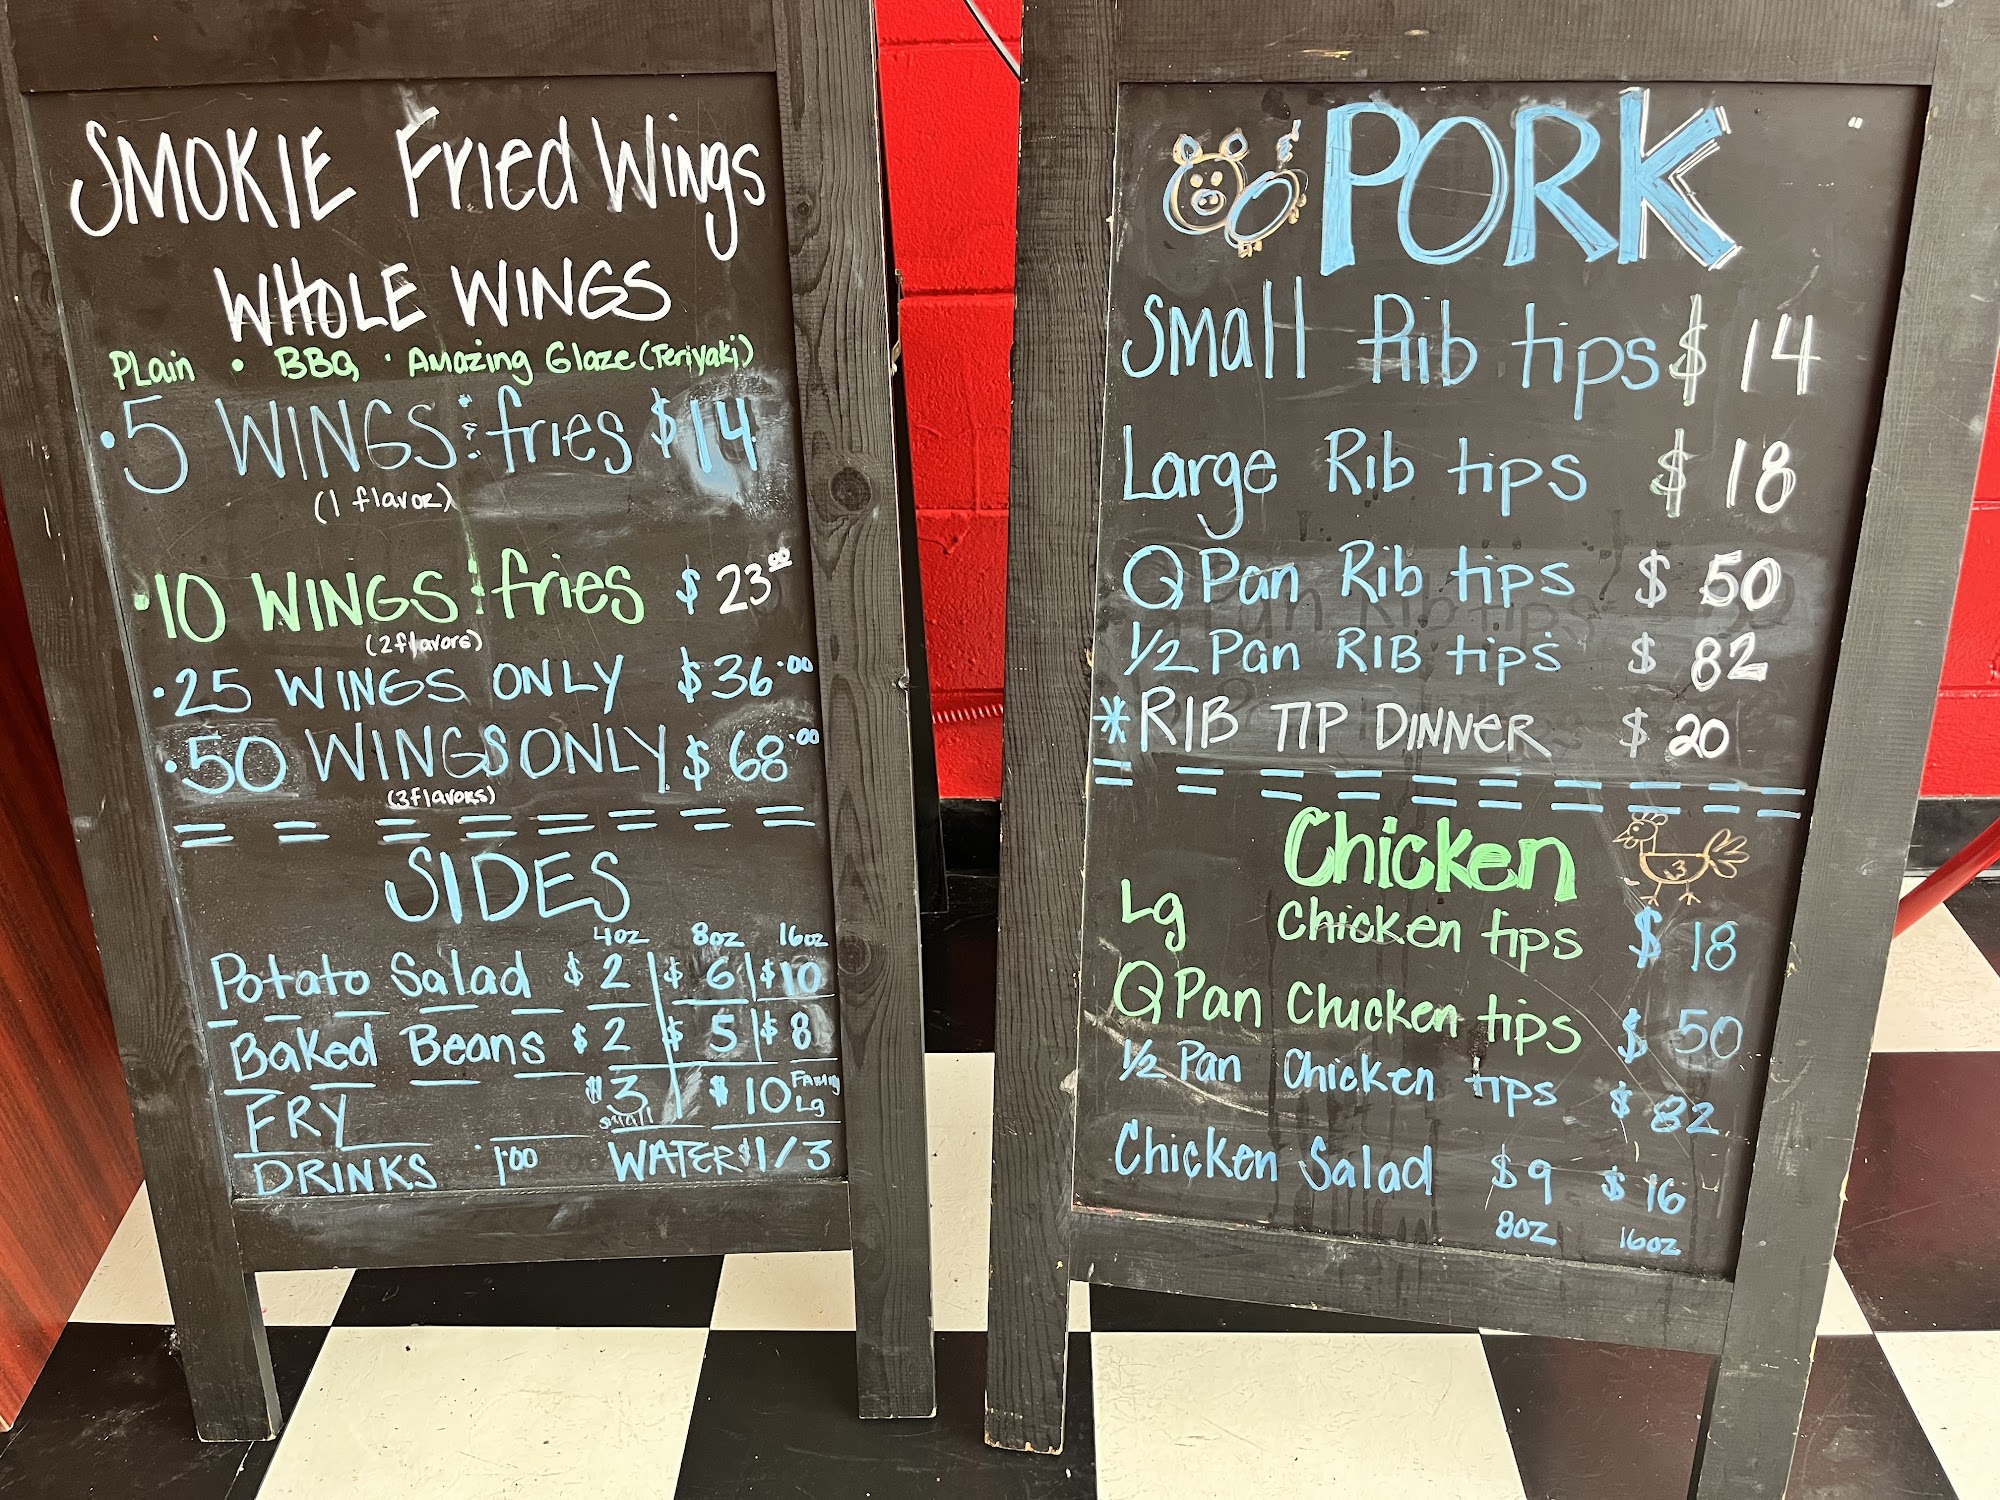 SMOKIE Fried Wings
WHOLE WINGS
PLain • BBQ • Amazing Glaze (Teriyaki)
•5 WINGS & fries $14
(1 flavor)
•10 WINGS & fries $23.00
(2 flavors)
•25 WINGS ONLY $36.00
•50 WINGS ONLY $68.00
(3 flavors)
SIDES
4oz 8oz 16oz
Potato Salad $2 $6 $10
Baked Beans $2 $5 $8
FRY $3 small $10 FAMILY Lg
DRINKS 1.00 WATER $1/3
PORK
Small Rib tips $14
Large Rib tips $18
Q Pan Rib tips $50
1/2 Pan RIB tips $82
*RIB TIP DINNER $20
Chicken
Lg Chicken tips $18
Q Pan Chicken tips $50
1/2 Pan Chicken tips $82
Chicken Salad $9 $16
8oz 16oz